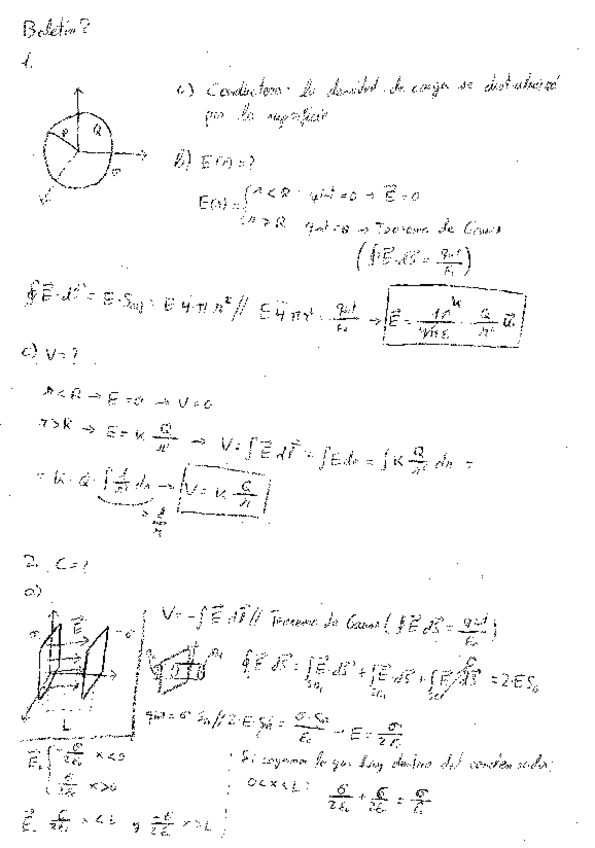 Boletín 2
1.
R Q
a) Conductora: la densidad de carga se distribuirá
por la superficie
b) E(r)=?
E(r) = { r<R qint=0 → E⃗=0
r>R qint=Q → Teorema de Gauss
(∮E⃗·dS⃗ = qint/ε₀)
∮E⃗·dS⃗ = E·S = E 4·π r² // E 4πr² = qint/ε₀ → E⃗ = 1/4πε₀ K · Q/r² u⃗r
c) V=?
r<R → E=0 → V=0
r>R → E = K Q/r² → V=∫E⃗ dr⃗ = ∫E dr = ∫K Q/r² dr =
= K·Q·∫1/r² dr → V = K Q/r
1/r
2. C=?
a)
σ E⃗ -σ
L
V=-∫E⃗ dr⃗ // Teorema de Gauss (∮E⃗ dS⃗ = qint/ε₀)
∮E⃗ dS⃗ = ∫E⃗·dS⃗ + ∫E⃗·dS⃗ + ∫E⃗ dS⃗ = 2·E S
qint = σ· // 2·E· = σ·/ε₀ → E = σ/2ε₀
E⃗ { -σ/2ε₀ x<0
σ/2ε₀ x>0
E⃗ σ/2ε₀ x<L y -σ/2ε₀ x>L
Si cogemos lo que hay dentro del condensador:
0<x<L: σ/2ε₀ + σ/2ε₀ = σ/ε₀